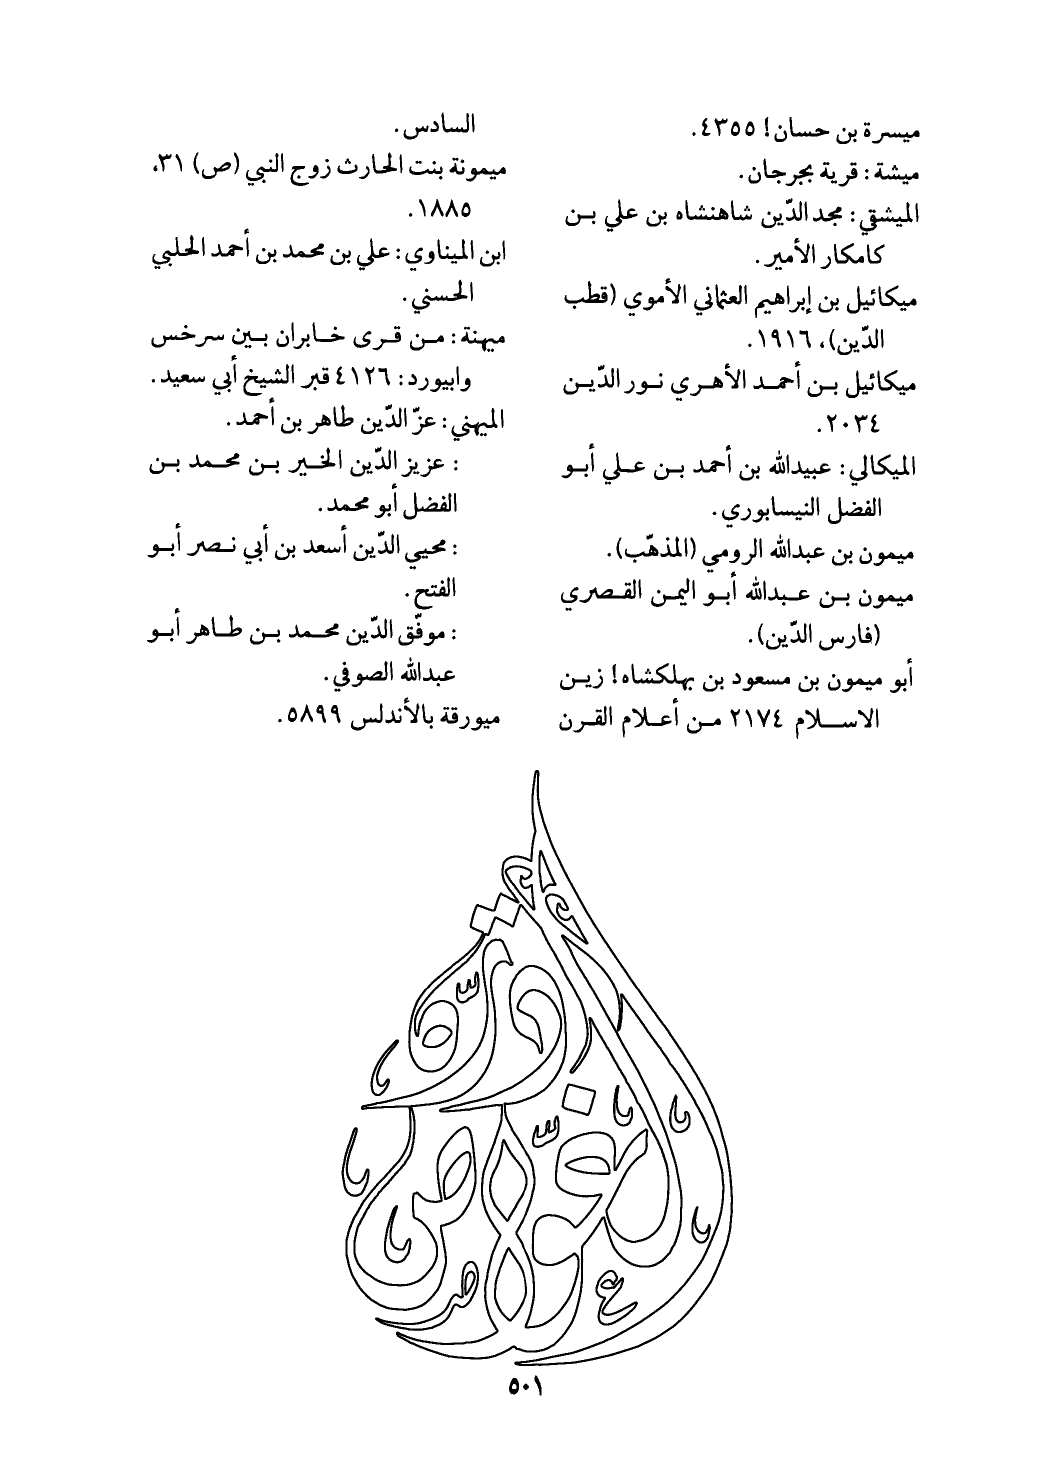 ميسرة بن حسان! ٤٣٥٥.
ميشة: قرية بجرجان.
الميشقي: مجد الدّين شاهنشاه بن علي بن
كامكار الأمير.
ميكائيل بن إبراهيم العثماني الأموي (قطب
الدّين)، ١٩١٦.
ميكائيل بن أحمد الأهري نور الدّين
٢٠٣٤.
الميكالي: عبيدالله بن أحمد بن علي أبو
الفضل النيسابوري.
ميمون بن عبدالله الرومي (المذهّب).
ميمون بن عبدالله أبو اليمن القصري
(فارس الدّين).
أبو ميمون بن مسعود بن بهلكشاه! زين
الاسلام ٢١٧٤ من أعلام القرن
السادس.
ميمونة بنت الحارث زوج النبي (ص) ٣١،
١٨٨٥.
ابن الميناوي: علي بن محمد بن أحمد الحلبي
الحسني.
ميهنة: من قرى خابران بين سرخس
وابيورد: ٤١٢٦ قبر الشيخ أبي سعيد.
الميهني: عزّ الدّين طاهر بن أحمد.
: عزيز الدّين الخير بن محمد بن
الفضل أبو محمد.
: محيي الدّين أسعد بن أبي نصر أبو
الفتح.
: موفّق الدّين محمد بن طاهر أبو
عبدالله الصوفي.
ميورقة بالأندلس ٥٨٩٩.
٥٠١